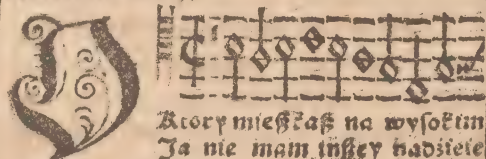 Ktory mießkaß na wyſokim
Ja nie mam inßey nadzieie